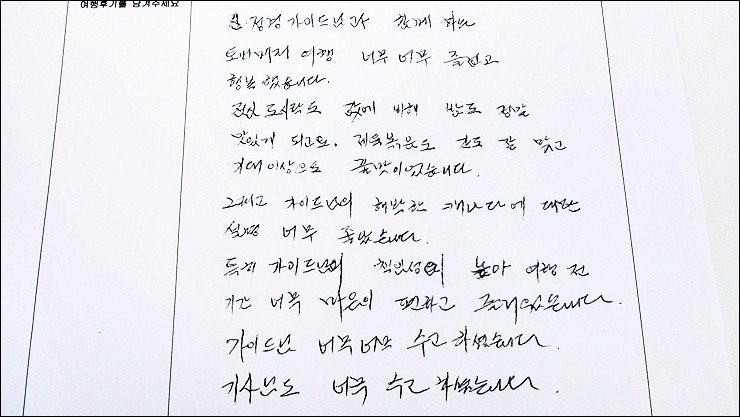 여행후기를 남겨주세요
가이드님과 함께 하는
토버머리 여행 너무 너무 즐겁고
행복 했습니다.
점심 도시락도 값에 비해 밥도 정말
맛있게 되고요. 제육볶음도 간도 잘 맞고
기대이상으로 꿀맛이었습니다.
그리고 가이드님의 해박한 캐나다에 대한
설명 너무 좋았습니다.
특히 가이드님의 책임성이 높아 여행 전
기간 너무 마음이 편하고 즐거웠습니다.
가이드님 너무 너무 수고 하셨습니다.
기사님도 너무 수고 하셨습니다.